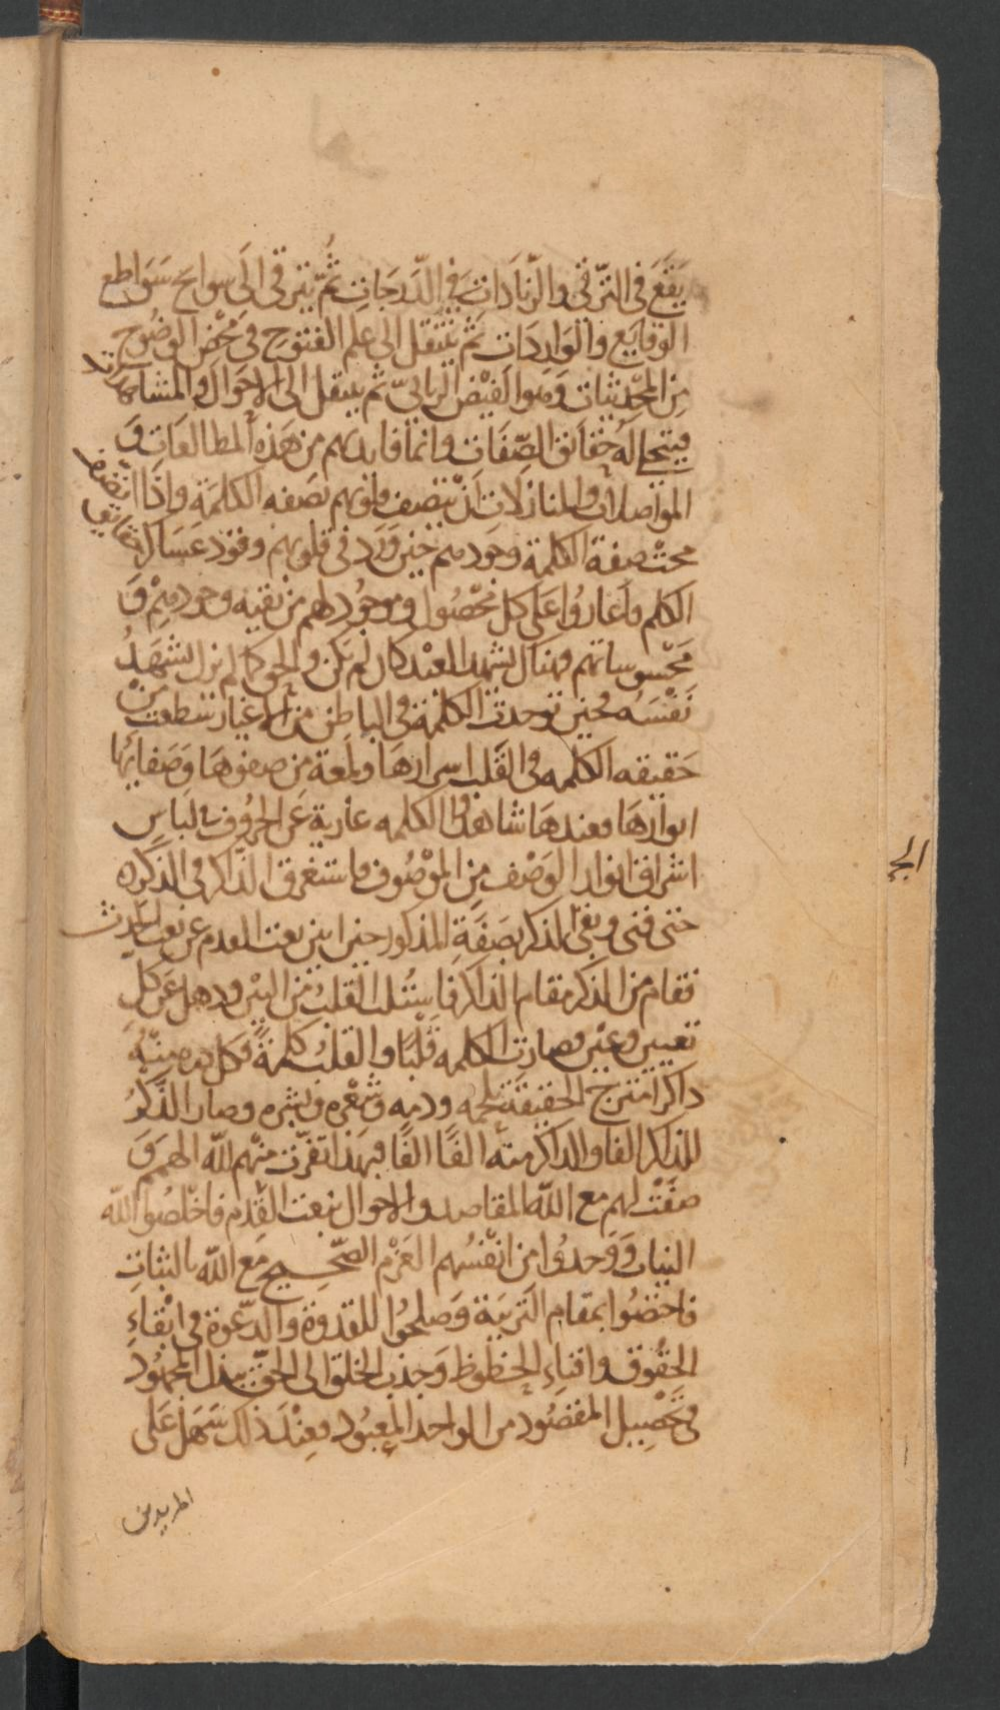 يَقَعَ في الترّقي والزيادات في الدّرجات ثُمّ يترقى الى سوابح سَوَاطع
الوقايع والوَارِدَات ثم ينتقل الى علم الفتوح في مَحْض الوضُوح
مِن المحدثات وهو الفَيْض الرباني ثم ينتقل الى الاحوال والمشاهدات
فيتجلى لَهُ حقائق الصِّفَات وانما فايدتهم من هَذه المطالعَات وَ
المواصلات والمنازلات ان تتصف قلوبهم بصفه الكلمَة واذا
محت صفة الكلمة وجودهم حين وَرَد في قلوبهم وفود عَسَاكر
الكلم واغارُوا عَلى كل محصُول وموجُود لهم من بقيه وجودهم وَ
مَحْسوساتهم فهنالك يشهد العبْد كان لم يكن والحق كما لم يزل لشهَدُ
نَفْسَهُ فحين توحدت الكلمة في الباطن من الاغيار سَطعت مِن
حَقيقه الكلمه في القَلب اسرارهَا ولمعة من صفوهَا وَصَفايهَا
انوارهَا فعندهَا شاهدوا الكلمه عارية عَن الحروُف في لبَاس
اشراق انوار الوَصْف من الموْصُوف فاستغرق الذّاكر في الذّكره
حتى فنى وبقى الذكر بصَفَةِ المذكور حين نعت العدم عن نعت الحدث
فقام من الذكر مقام الذاكر فاستُلب القلبُ من البَيْن وذهل عَن كل
تعيين وعَيْن وصارت الكلمه قَلْبًا والقلبُ كلمةً فكل منه
ذاكر امتزج الحقيقة بلحمه ودمه وشَعْره وبشره وصار الذّكرُ
للذاكر الفا والذاكر منه الفًا الفًا فبهَذا تقرّبت منهم للّه الهمم وَ
صفَتْ لهم مع اللّه المقاصد والاحوال بنعت القِدم فاخلصُوا للّه
النيات وَوَحدوُا من انفُسُهم العَزْم الصّحِيح مَع اللّه بالثبَاتِ
فاختصُوا بمقام التربيَة وَصَلحوُا للقدوة والدّعوة في ابْقاء
الحقُوق وافناء الحظوظ وَجذب الخلق الى الحق ببذل المجهُود
في تَحْصِيل المقصُود من الواحد المعبُود وعنْد ذلك سَهَل عَلى
المريدين